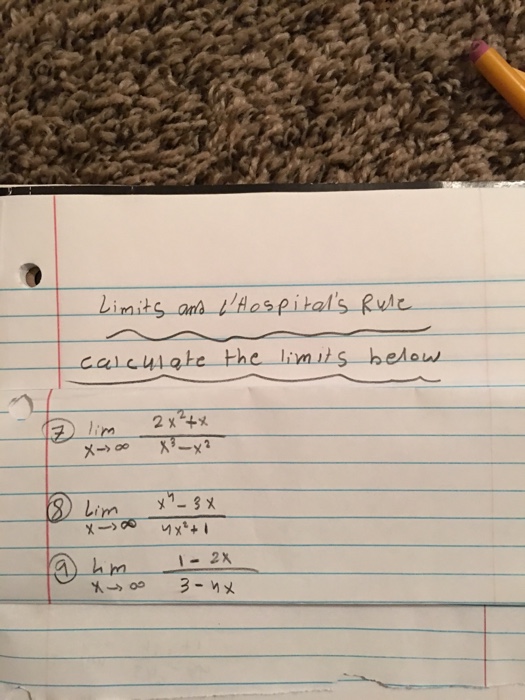 Limits and l'Hospital's Rule
calculate the limits below
⑦ lim x→∞ (2x²+x)/(x³-x²)
⑧ Lim x→∞ (x⁴-3x)/(4x²+1)
⑨ lim x→∞ (1-2x)/(3-4x)